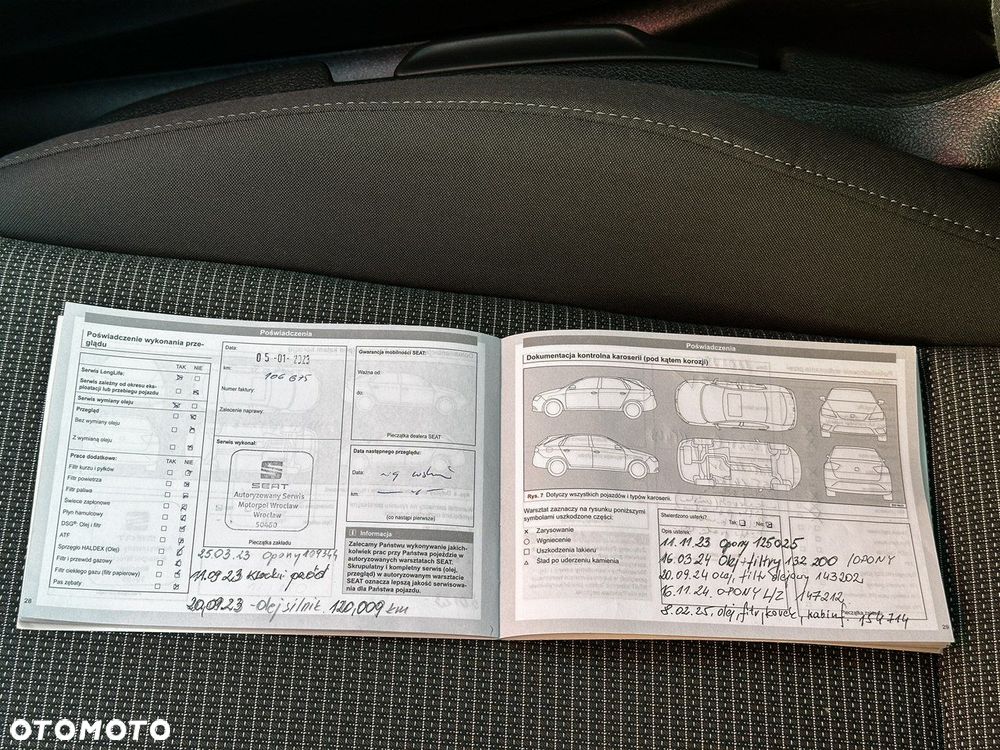 Poświadczenia
Poświadczenie wykonania prze-
glądu
TAK NIE
Serwis LongLife:
Serwis zależny od okresu eks-
ploatacji lub przebiegu pojazdu
Serwis wymiany oleju
Przegląd
Bez wymiany oleju
Z wymianą oleju
Prace dodatkowe: TAK NIE
Filtr kurzu i pyłków
Filtr powietrza
Filtr paliwa
Świece zapłonowe
Płyn hamulcowy
DSG® Olej i filtr
ATF
Sprzęgło HALDEX (Olej)
Filtr i przewód gazowy
Filtr ciekłego gazu (filtr papierowy)
Pas zębaty
28
Data:
05-01-2023
km:
106 875
Numer faktury:
Zalecenie naprawy:
Serwis wykonał:
SEAT
Autoryzowany Serwis
Motorpol Wrocław
Wrocław
50460
Pieczątka zakładu
Gwarancja mobilności SEAT:
Ważna od:
do:
Pieczątka dealera SEAT
Data następnego przeglądu:
Data: wg wskaz
km:
(co nastąpi pierwsze)
i Informacja
Zalecamy Państwu wykonywanie jakich-
kolwiek prac przy Państwa pojeździe w
autoryzowanych warsztatach SEAT.
Skrupulatny i kompletny serwis (olej,
przegląd) w autoryzowanym warsztacie
SEAT oznacza lepszą jakość serwisowa-
nia dla Państwa pojazdu.
25.03.23 opony 109344
11.09.23 klocki przód
20.09.23 - olej silnik. 120,009 km
Poświadczenia
Dokumentacja kontrolna karoserii (pod kątem korozji)
Rys. 7 Dotyczy wszystkich pojazdów i typów karoserii.
Warsztat zaznaczy na rysunku poniższymi
symbolami uszkodzone części:
x Zarysowanie
○ Wgniecenie
□ Uszkodzenia lakieru
△ Ślad po uderzeniu kamienia
Stwierdzono usterki?
Tak Nie
Opis usterek:
11.11.23 opony 125025
16.03.24 olej+filtry 132 200 /OPONY
20.09.24 olej, filtr olejowy 143202
16.11.24. OPONY L/Z 147212
Pieczątka zakładu
8.02.25. olej, filtr, kabin. 154714
29
OTOMOTO